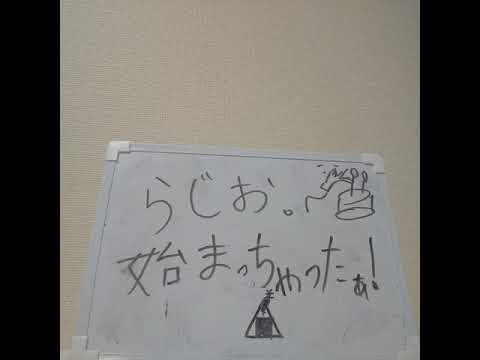 らじお。
始まっちゃったぁ!